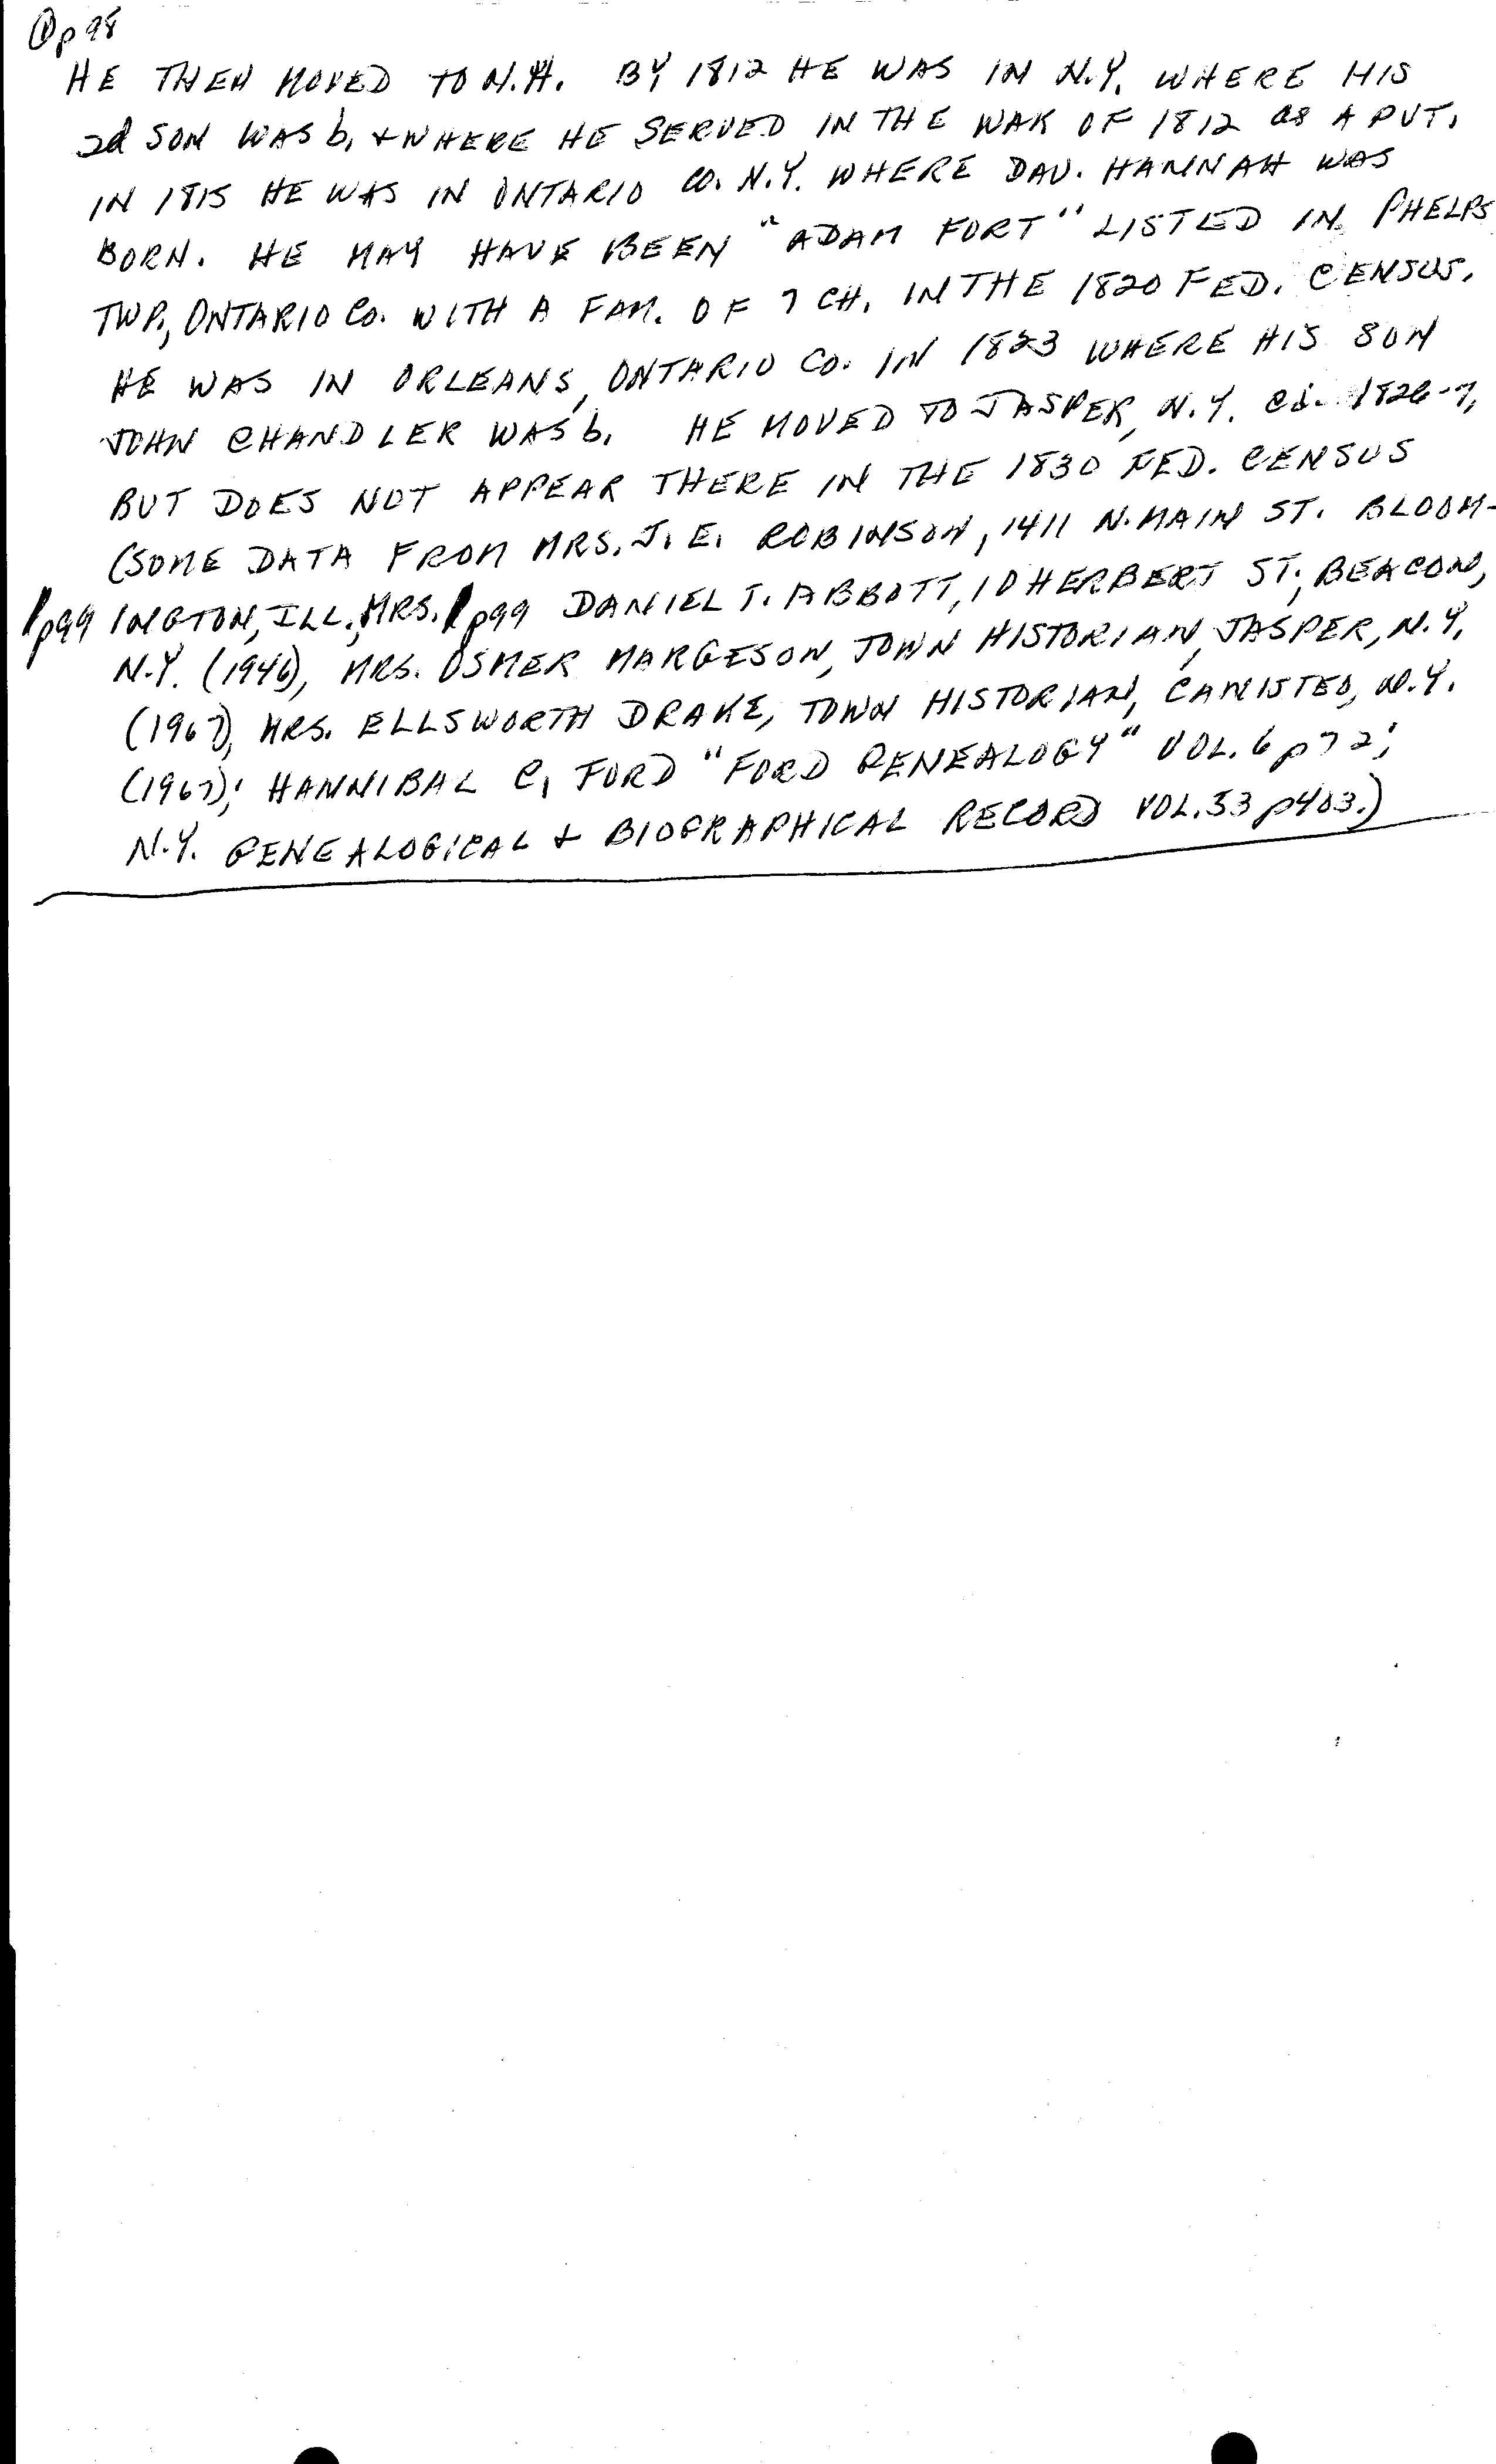 ① p 98
HE THEN MOVED TO N.H. BY 1812 HE WAS IN N.Y. WHERE HIS
2d SON WAS b. + WHERE HE SERVED IN THE WAR OF 1812 as A PVT.
IN 1815 HE WAS IN ONTARIO CO. N.Y. WHERE DAU. HANNAH WAS
BORN. HE MAY HAVE BEEN "ADAM FORT" LISTED IN PHELPS
TWP., ONTARIO CO. WITH A FAM. OF 7 CH. IN THE 1820 FED. CENSUS.
HE WAS IN ORLEANS, ONTARIO CO. IN 1823 WHERE HIS SON
JOHN CHANDLER WAS b. HE MOVED TO JASPER, N.Y. ca. 1826-7,
BUT DOES NOT APPEAR THERE IN THE 1830 FED. CENSUS
(SOME DATA FROM MRS. J. E. ROBINSON, 1411 N. MAIN ST. BLOOM-
p99 INGTON, ILL., MRS. p99 DANIEL T. ABBOTT, 10 HERBERT ST., BEACON,
N.Y. (1946), MRS. OSMER MARGESON, TOWN HISTORIAN, JASPER, N.Y.
(1967), MRS. ELLSWORTH DRAKE, TOWN HISTORIAN, CANISTEO, N.Y.
(1967); HANNIBAL C. FORD "FORD GENEALOGY" VOL. 6 p 72;
N.Y. GENEALOGICAL + BIOGRAPHICAL RECORD VOL. 53 p403.)